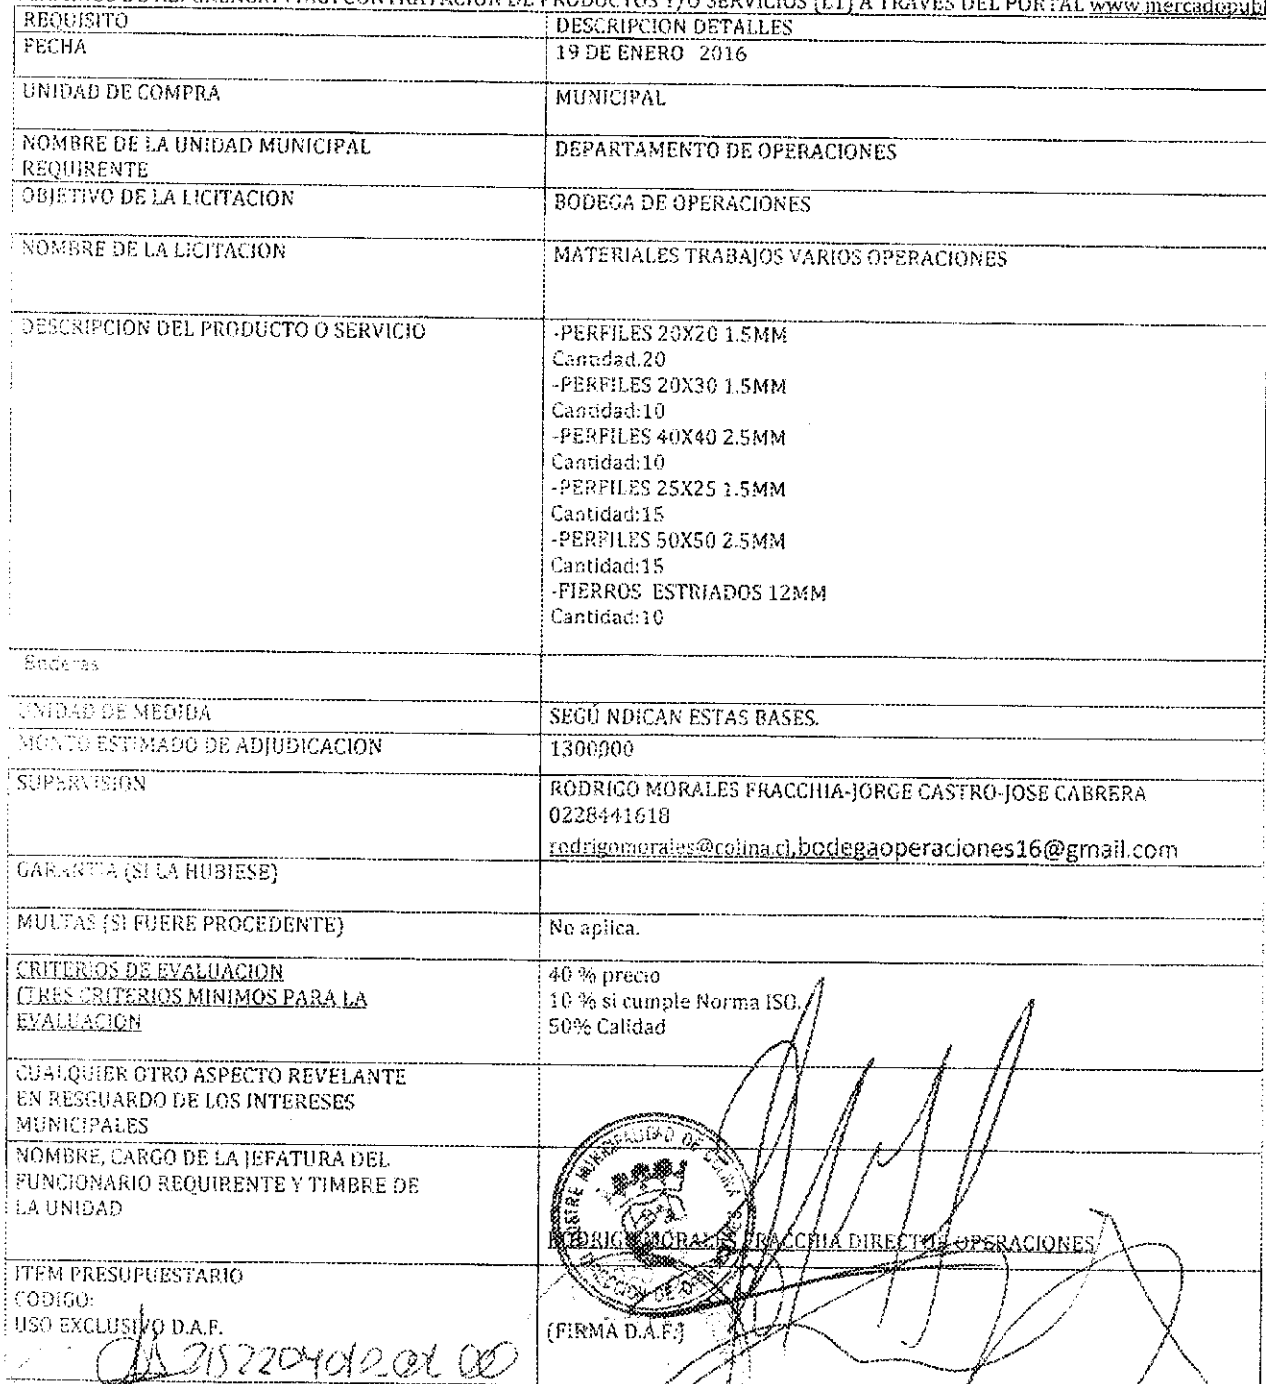 CONTRATACION DE PRODUCTOS Y/O SERVICIOS (L1) A TRAVES DEL PORTAL www.mercadopubl
REQUISITO DESCRIPCION DETALLES
FECHA 19 DE ENERO 2016
UNIDAD DE COMPRA MUNICIPAL
NOMBRE DE LA UNIDAD MUNICIPAL
REQUIRENTE
DEPARTAMENTO DE OPERACIONES
OBJETIVO DE LA LICITACION BODEGA DE OPERACIONES
NOMBRE DE LA LICITACION MATERIALES TRABAJOS VARIOS OPERACIONES
DESCRIPCION DEL PRODUCTO O SERVICIO
-PERFILES 20X20 1.5MM
Cantidad.20
-PERFILES 20X30 1.5MM
Cantidad:10
-PERFILES 40X40 2.5MM
Cantidad:10
-PERFILES 25X25 1.5MM
Cantidad:15
-PERFILES 50X50 2.5MM
Cantidad:15
-FIERROS ESTRIADOS 12MM
Cantidad:10
UNIDAD DE MEDIDA SEGÚ NDICAN ESTAS BASES.
MONTO ESTIMADO DE ADJUDICACION 1300000
SUPERVISION
RODRIGO MORALES FRACCHIA-JORGE CASTRO-JOSE CABRERA
0228441618
rodrigomorales@colina.cl,bodegaoperaciones16@gmail.com
GARANTIA (SI LA HUBIESE)
MULTAS (SI FUERE PROCEDENTE) No aplica.
CRITERIOS DE EVALUACION
(TRES CRITERIOS MINIMOS PARA LA
EVALUACION
40 % precio
10 % si cumple Norma ISO.
50% Calidad
CUALQUIER OTRO ASPECTO REVELANTE
EN RESGUARDO DE LOS INTERESES
MUNICIPALES
NOMBRE, CARGO DE LA JEFATURA DEL
FUNCIONARIO REQUIRENTE Y TIMBRE DE
LA UNIDAD
ILUSTRE MUNICIPALIDAD DE COLINA
DIRECCION DE OPERACIONES
RODRIGO MORALES FRACCHIA DIRECTOR OPERACIONES
ITEM PRESUPUESTARIO
CODIGO:
USO EXCLUSIVO D.A.F.
(FIRMA D.A.F.)